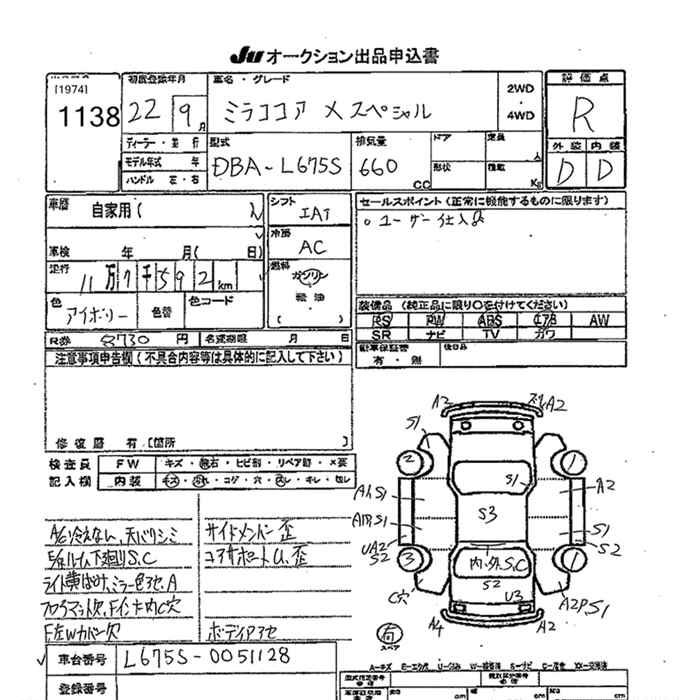 JU オークション出品申込書
[1974]
1138
初度登録年月
22 9月
車名・グレード
ミラココア Xスペシャル
2WD
・
4WD
評価点
R
外装 内装
D D
ディーラー・並行
モデル年式 年
ハンドル 左・右
型式
DBA-L675S
排気量
660 CC
ドア
形状
定員 人
積載 Kg
車歴
自家用(
車検 年 月( 日)
走行
11万7千592 km
色
アイボリー
色替
色コード
シフト
IAT
冷房
AC
燃料
ガソリン
軽油
( )
セールスポイント(正常に機能するものに限ります)
。ユーザー仕入品
装備品(純正品に限り○を付けてください)
PS PW ABS エアB AW
SR ナビ TV カワ
新車保証書
有・無
後日品
R券 8730 円
名変期限 月 日
注意事項申告欄(不具合内容等は具体的に記入して下さい)
修復歴 有[箇所 ]
検査員
記入欄
FW
キズ・飛石・ヒビ割・リペア跡・×要
内装
キズ・汚れ・コゲ・穴・スレ・キレ・
A/C冷えない、天バリシミ
E/gルーム下廻りS,C
ライト黄ばみ、ミラー色アセ、A
フロアマット欠、Fインナー内C穴
F左Wカバー欠
サイドメンバー歪
コアサポートU、歪
ボディアセ
車台番号 L675S-0051128
登録番号
A2
A2
S1
2
1
A1,S1
S1
A2
S3
S1
UA2
S2
S2
3
1
内・外S,C
S2
C穴
U3
A2P,S1
A4
A2
有
スペア